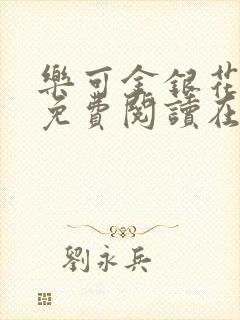 樂可金銀花
免費閱讀在
劉永兵